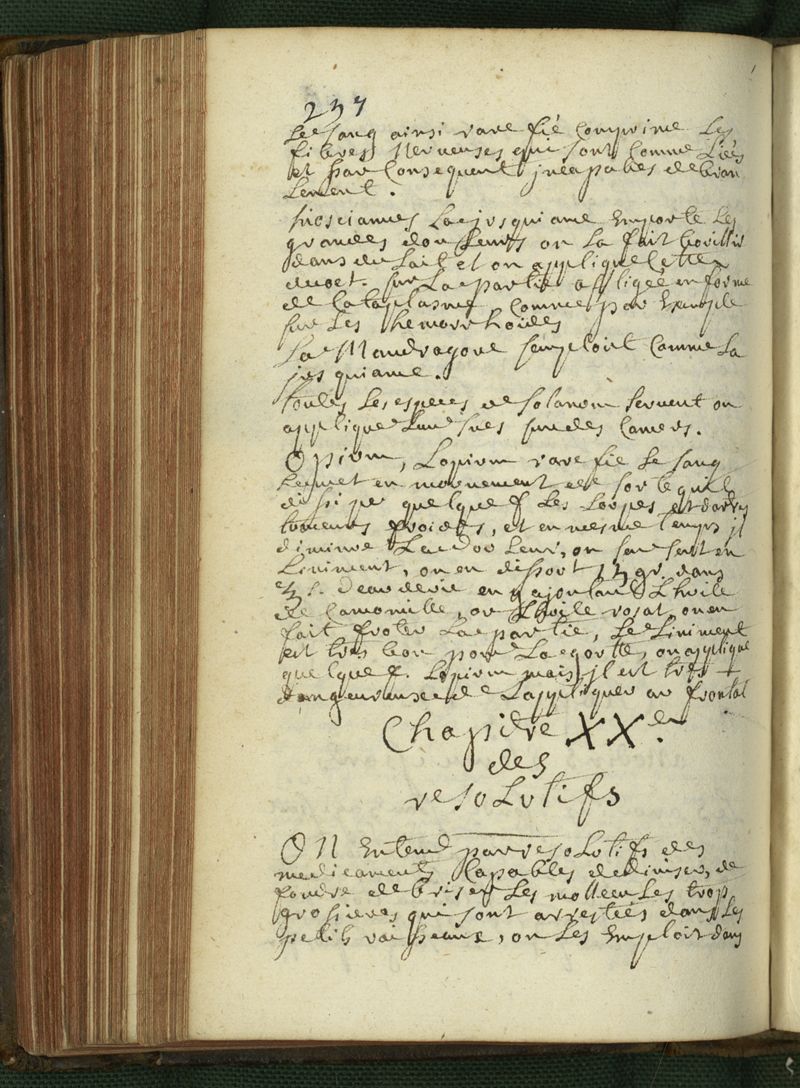 237
Le sang ainsi rarefié comprime Les
fibres Nerueuses qui sont comme Liées
et par Consequent jncapables debran
Lement.
hiosciames La jusquiame Emporte les
grandes douleurs on La fait boüillir
dans du Lait et on applique Cette
sur La partie affligée en forme
de Cataplasme comme par Exemple
sur Les hemorrhoides
La Mandragore semploit Comme La
jusquiame.
toutes Les especes de solanom seruent on
applique Leur sues sur des Cancers.
Opiom, Lopiom rarefie Le sang
Le met en mouuement de sorte quil
dissipe quelque f. Les Loupes et dautres
tumeurs froides, et en mesme temps jl
diminue La douleur, on sen sert en
Liniment, on en dissout gr. dans
deau de vie en y ajoutant Lhuile
de Camomille, ou Lhuile rosat, on en
fait froter La partie, Le Liniment
est tres bon pour La goutte, on applique
quelque f. Lopiom mais jl est tres +
dangereuse de Lappliquer au frontal
Chapitre XXe.
des
resolutifs
ON Entend par resolutifs des
medicaments Capables de diuiser, de
fondre de briser Les molleculles trop
grossieres qui sont arrestées dans Les
petits vaisseaux, on Les Emploit dans